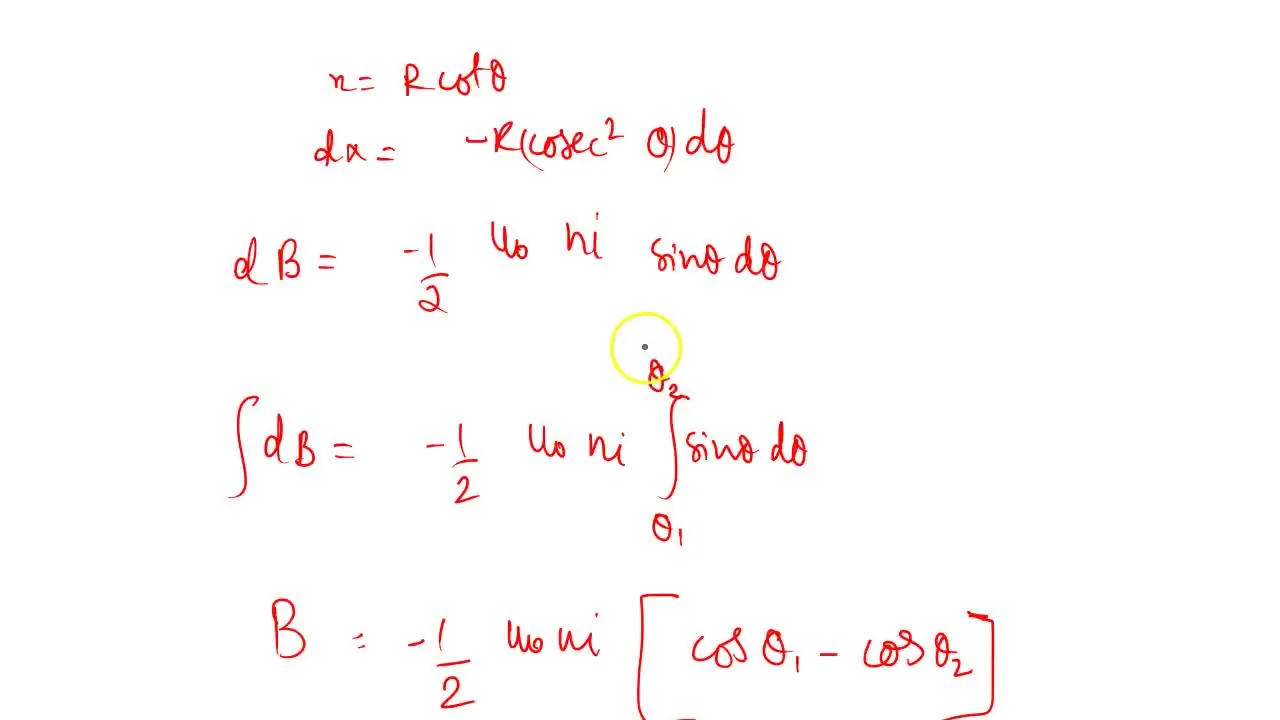 x = R cotθ
dx = -R(cosec² θ) dθ
dB = -1/2 μ₀ ni sinθ dθ
∫ dB = -1/2 μ₀ ni ∫_θ₁^θ₂ sinθ dθ
B = -1/2 μ₀ ni [ cos θ₁ - cos θ₂ ]